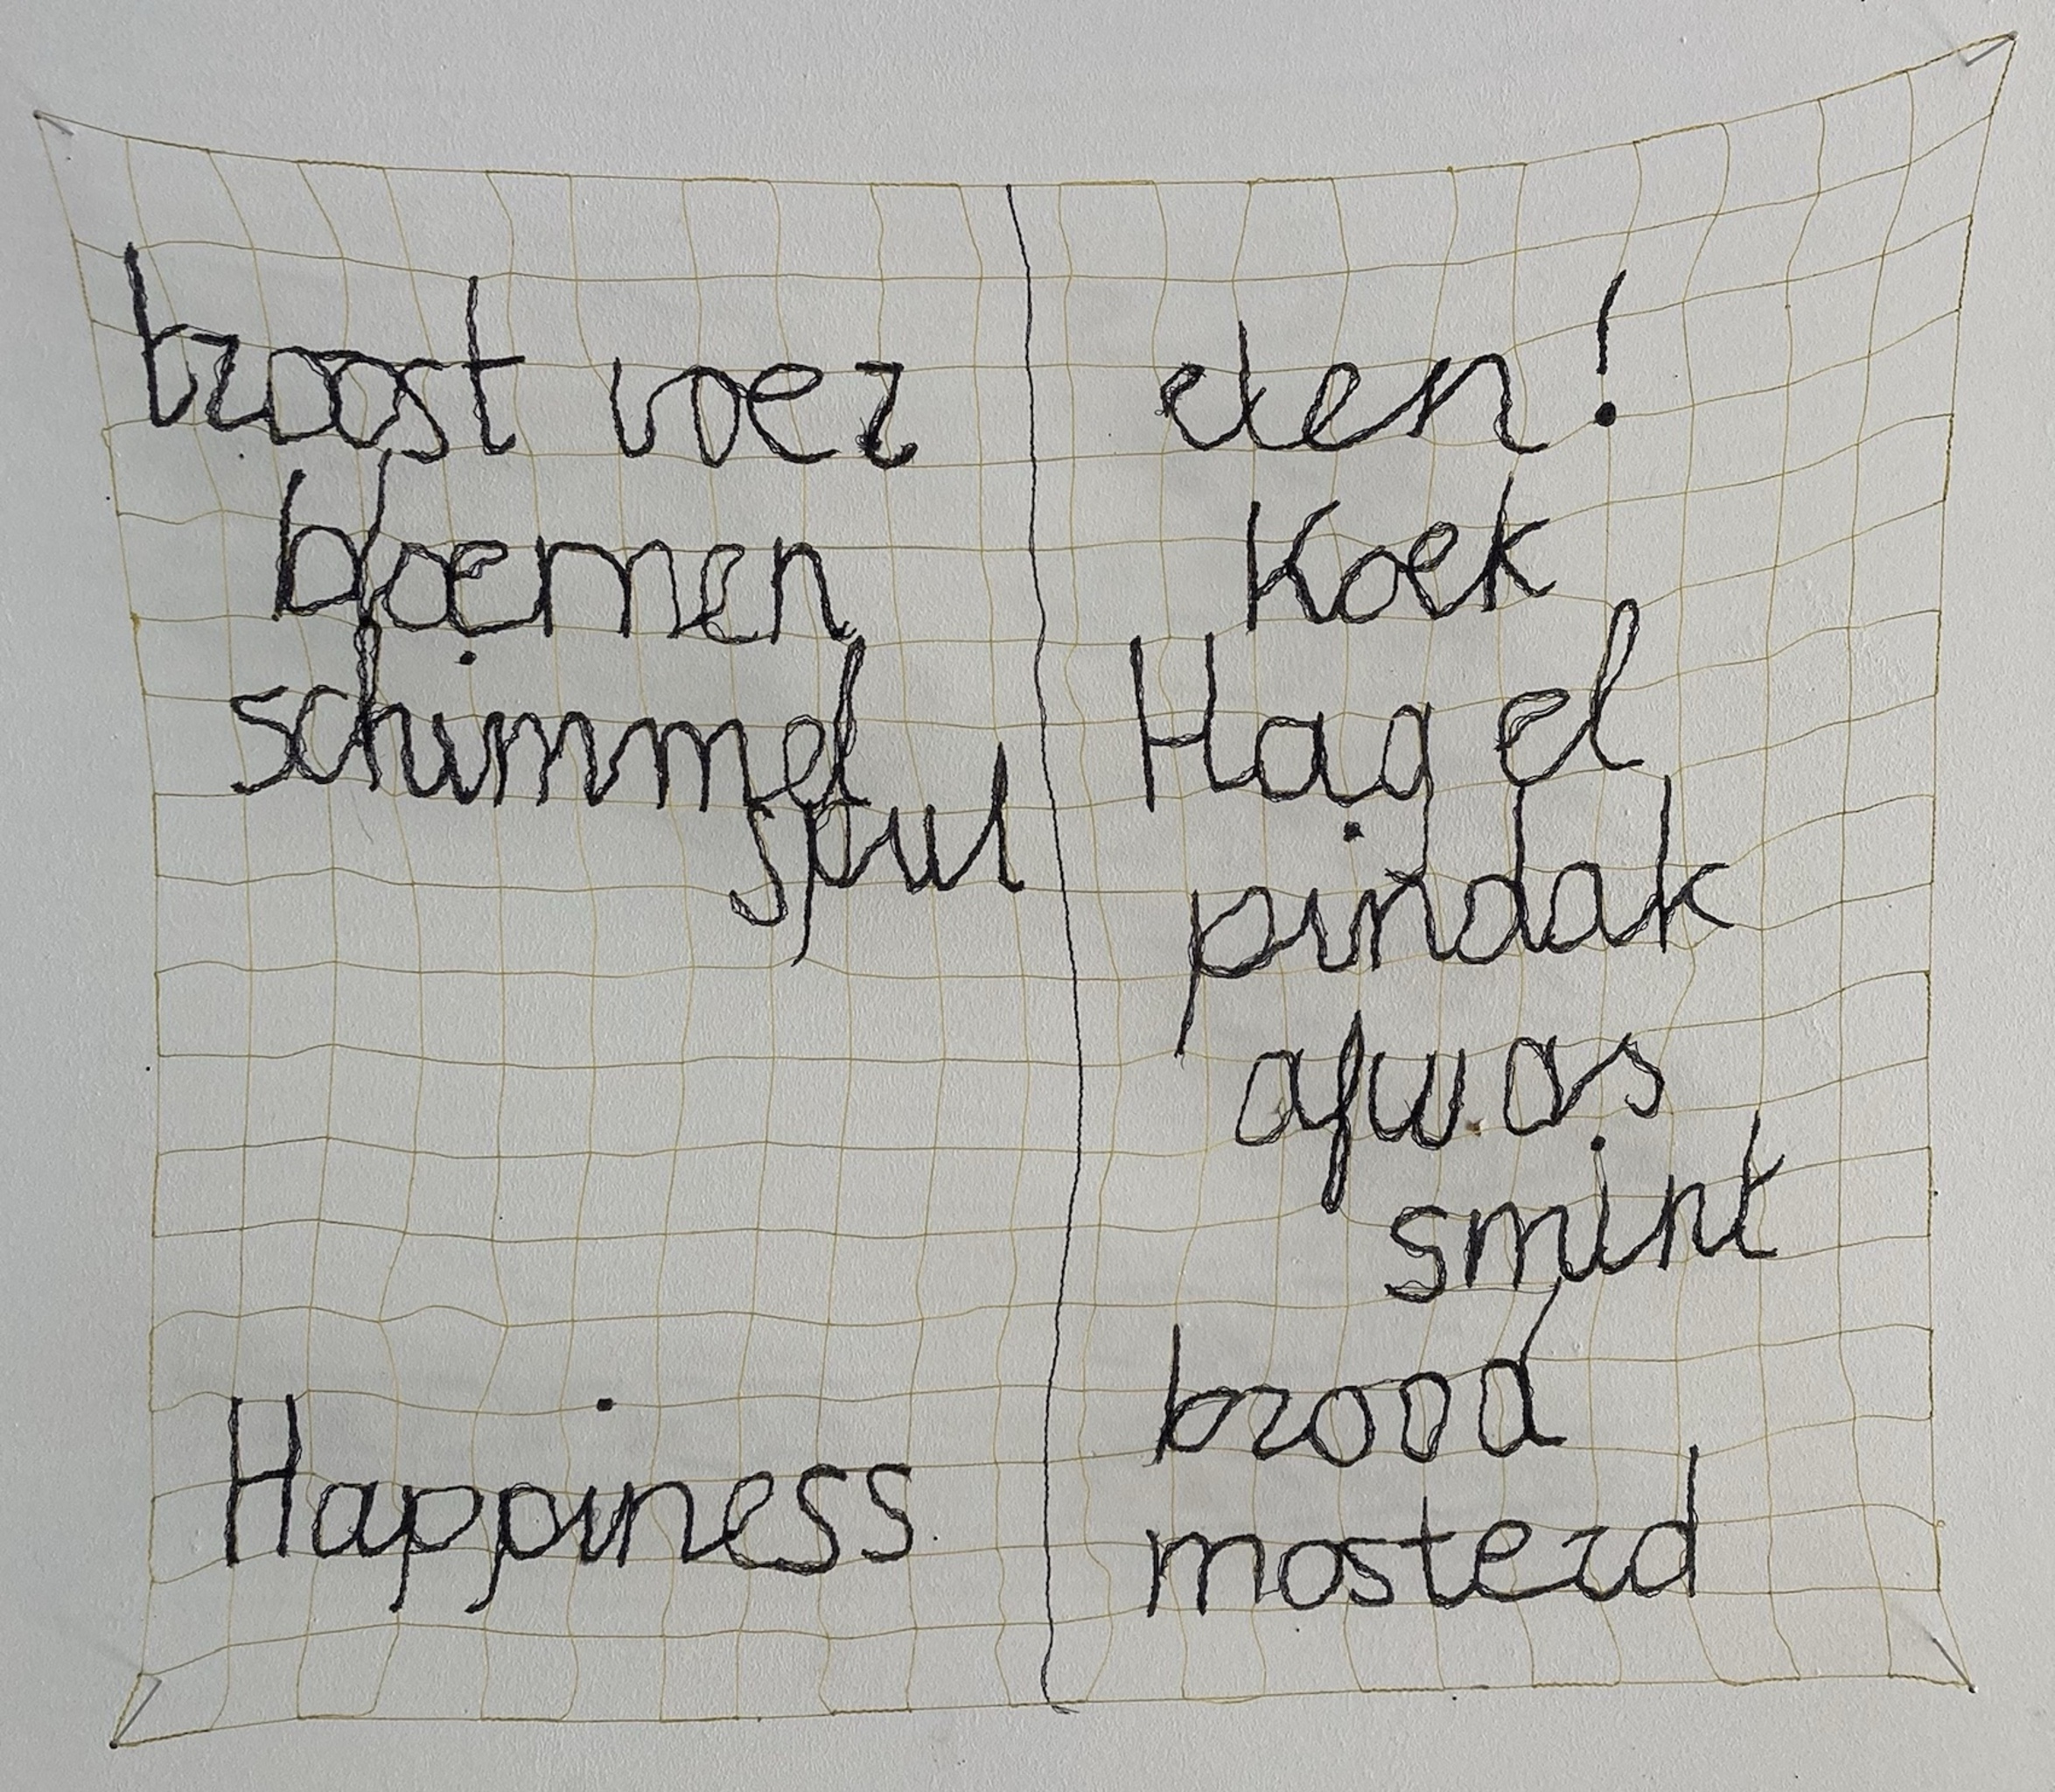 troost voer
bloemen
schimmel
spul
Happiness
eten!
Koek
Hagel
pindak
afwas
smint
brood
mosterd